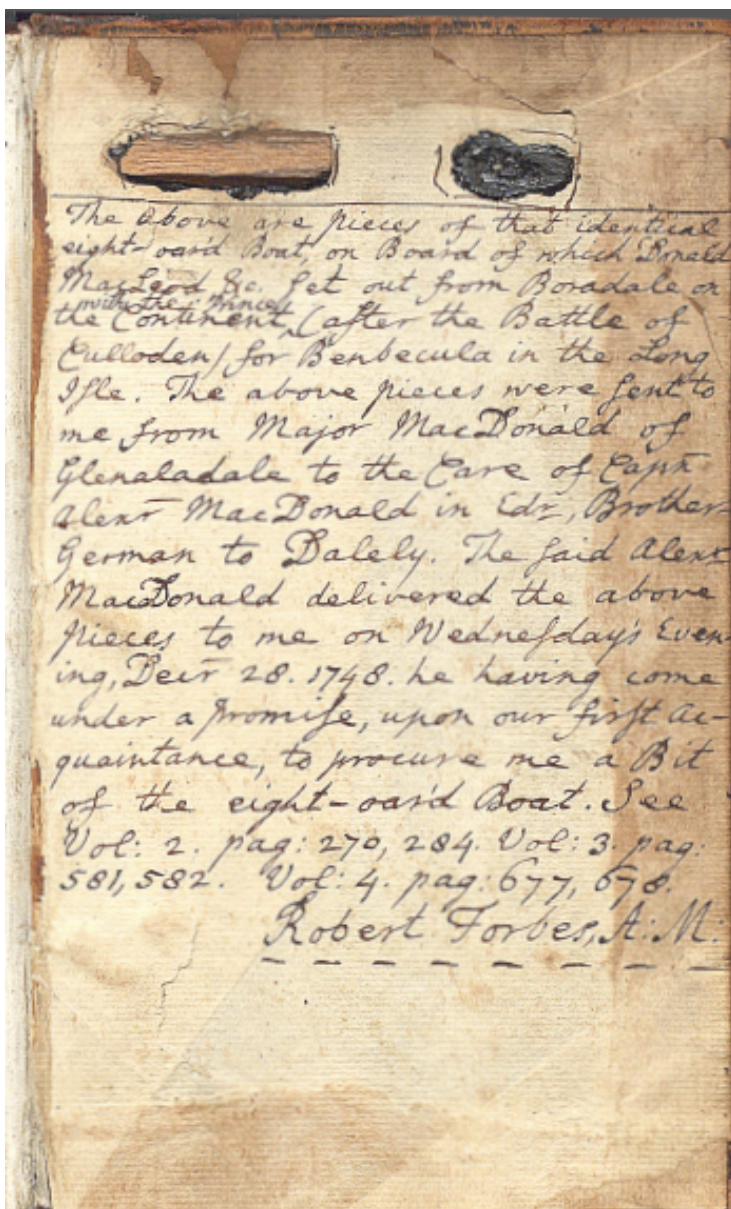 The above are pieces of that identical
eight-oar'd Boat, on Board of which Donald
MacLeod &c. ſet out from Boradale on
with the Prince
the Continent, (after the Battle of
Culloden) for Benbecula in the Long
Iſle. The above pieces were ſent to
me from Major MacDonald of
Glenaladale to the Care of Capn
Alexr MacDonald in Edr, Brother-
German to Dalely. The ſaid Alexr
MacDonald delivered the above
pieces to me on Wedneſday's Even-
ing, Decr 28. 1748. he having come
under a promiſe, upon our firſt Ac-
quaintance, to procure me a Bit
of the eight-oar'd Boat. See
Vol: 2. pag: 270, 284. Vol: 3. pag:
581, 582. Vol: 4. pag: 677, 678.
Robert Forbes, A: M: